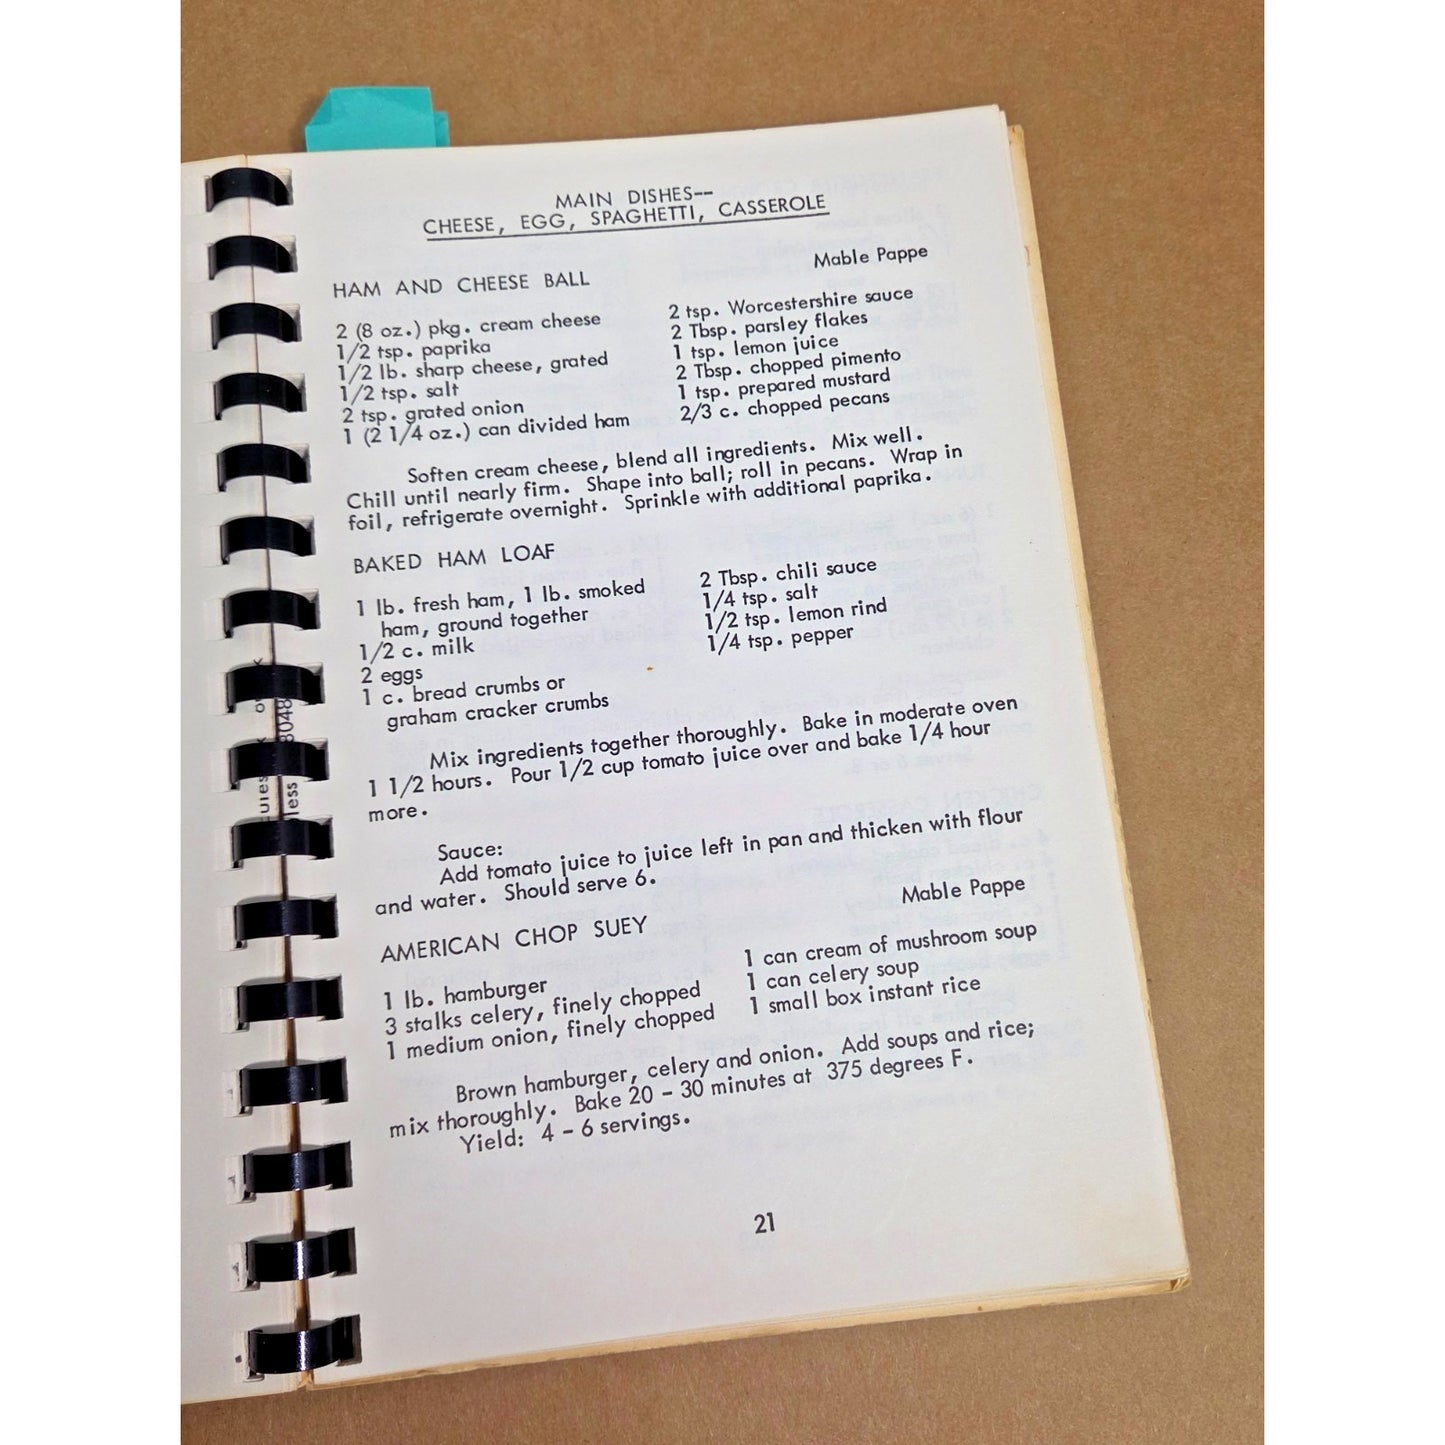 MAIN DISHES--
CHEESE, EGG, SPAGHETTI, CASSEROLE
Mable Pappe
HAM AND CHEESE BALL
2 (8 oz.) pkg. cream cheese
1/2 tsp. paprika
1/2 lb. sharp cheese, grated
1/2 tsp. salt
2 tsp. grated onion
1 (2 1/4 oz.) can divided ham
2 tsp. Worcestershire sauce
2 Tbsp. parsley flakes
1 tsp. lemon juice
2 Tbsp. chopped pimento
1 tsp. prepared mustard
2/3 c. chopped pecans
Soften cream cheese, blend all ingredients. Mix well.
Chill until nearly firm. Shape into ball; roll in pecans. Wrap in
foil, refrigerate overnight. Sprinkle with additional paprika.
BAKED HAM LOAF
1 lb. fresh ham, 1 lb. smoked
ham, ground together
1/2 c. milk
2 eggs
1 c. bread crumbs or
graham cracker crumbs
2 Tbsp. chili sauce
1/4 tsp. salt
1/2 tsp. lemon rind
1/4 tsp. pepper
Mix ingredients together thoroughly. Bake in moderate oven
1 1/2 hours. Pour 1/2 cup tomato juice over and bake 1/4 hour
more.
Sauce:
Add tomato juice to juice left in pan and thicken with flour
and water. Should serve 6.
Mable Pappe
AMERICAN CHOP SUEY
1 lb. hamburger
3 stalks celery, finely chopped
1 medium onion, finely chopped
1 can cream of mushroom soup
1 can celery soup
1 small box instant rice
Brown hamburger, celery and onion. Add soups and rice;
mix thoroughly. Bake 20 - 30 minutes at 375 degrees F.
Yield: 4 - 6 servings.
21